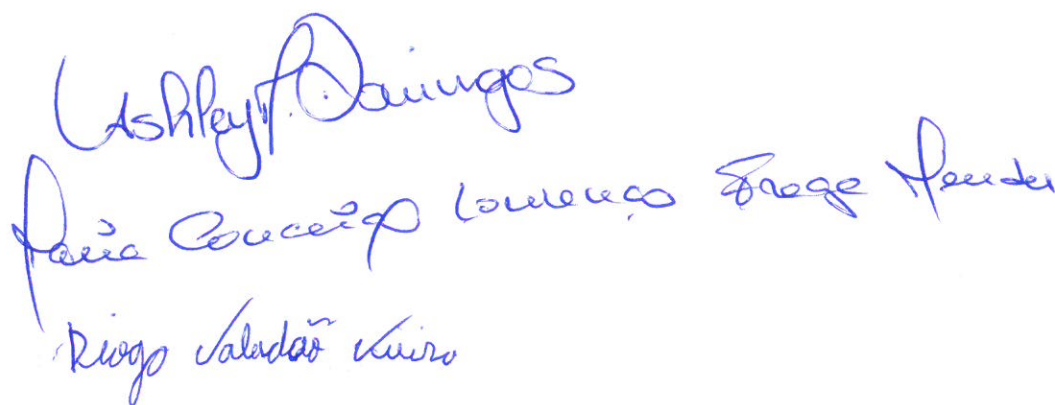 Ashley P. Domingos
Maria Conceição Lourenço Fraga Mendes
Diogo Valadão Vieira